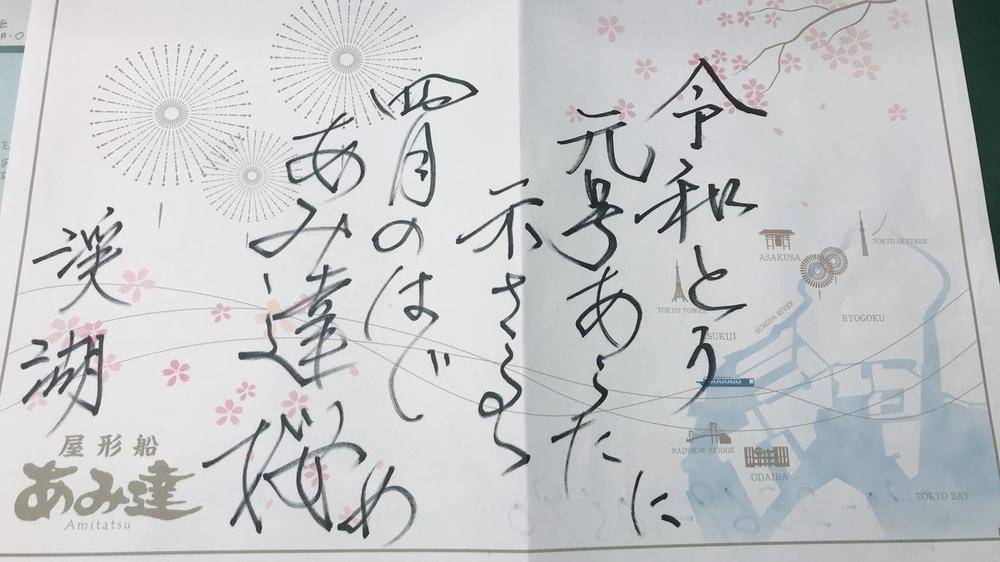 令和とう
元号あらたに
示さるる
四月のはじめ
あみ達桜
渓湖
屋形船
あみ達
Amitatsu
ASAKUSA
TOKYO SKYTREE
TOKYO TOWER
SUMIDA RIVER
RYOGOKU
SUKIJI
RAINBOW BRIDGE
ODAIBA
TOKYO BAY